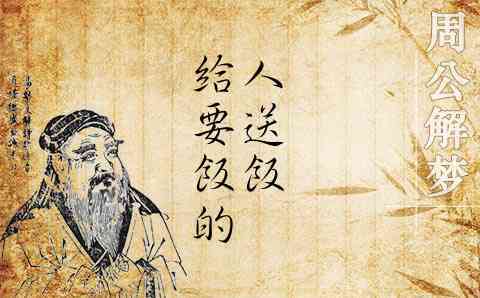 周公解梦
给要饭的
人送饭